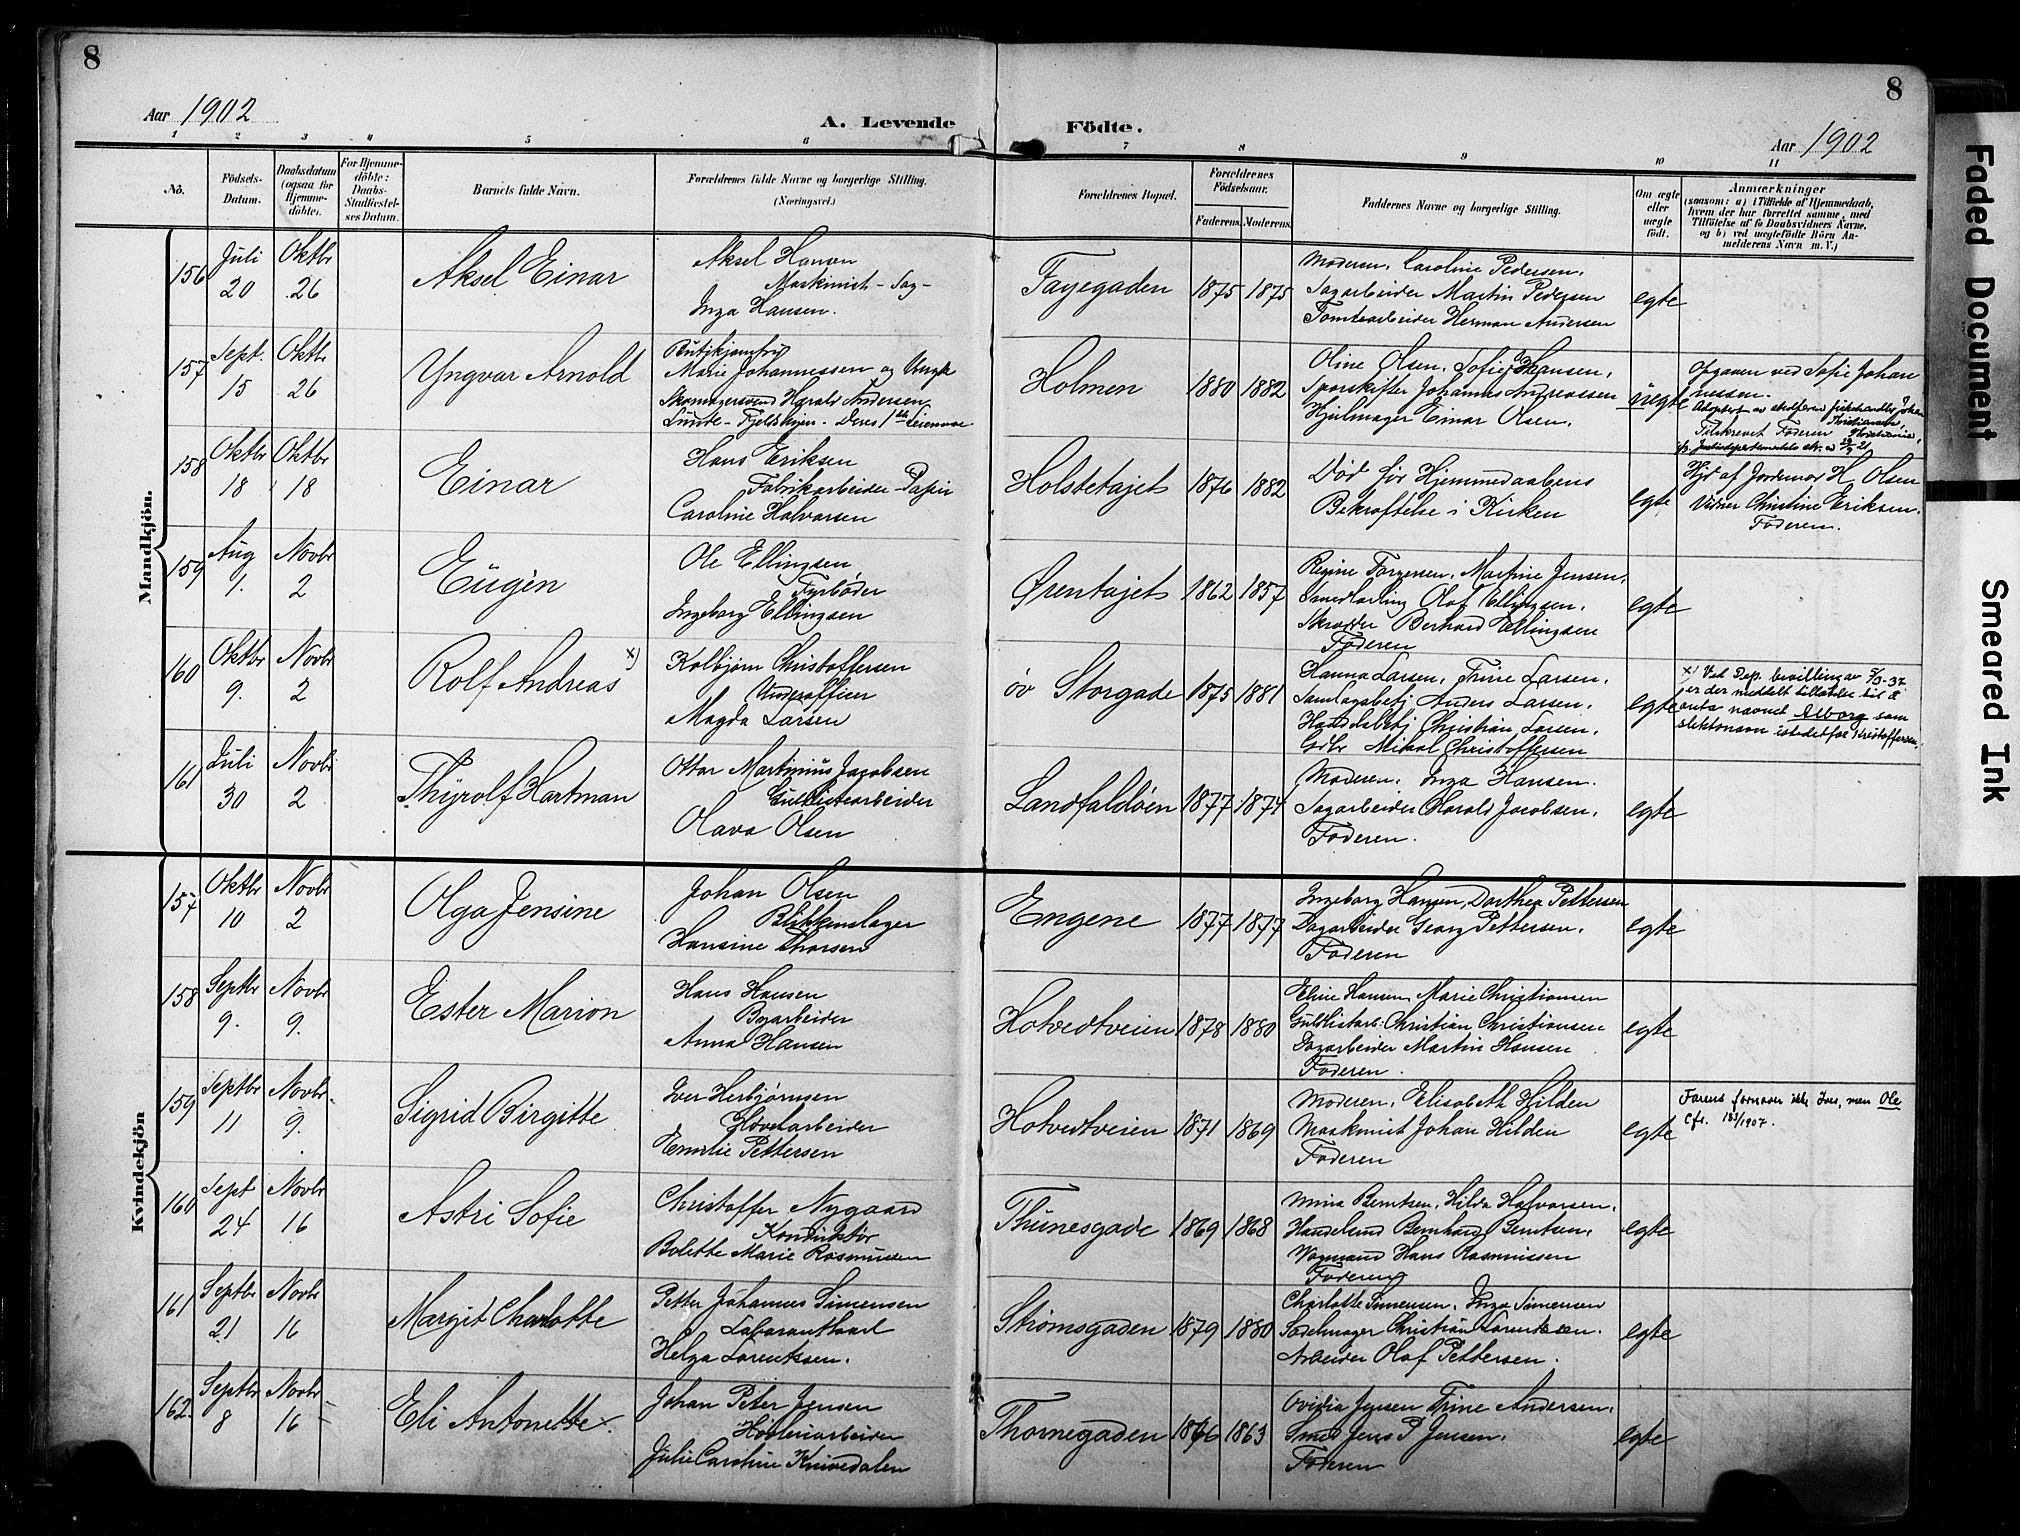 8
8
Aar 1902
A. Levende Födte.
Aar 1902
1 2 3 4 5 6 7 8 9 10 11
No.
Födsels-Datum.
Daabsdatum (ogsaa for Hjemmedöbte).
For Hjemmedöbte: Daabs-Stadfæstelses Datum.
Barnets fulde Navn.
Forældrenes fulde Navne og borgerlige Stilling. (Næringsvei.)
Forældrenes Bopæl.
Forældrenes Födselsaar.
Faderens. Moderens.
Faddernes Navne og borgerlige Stilling.
Om ægte eller uægte födt.
Anmærkninger
(saasom: a) i Tilfælde af Hjemmedaab, hvem der har forrettet samme, med Tilföielse af to Daabsvidners Navne, og b) ved uægtefödte Börn Anmelderens Navn m. V.)
Mandkjön.
156 Juli 20 Oktbr 26
Aksel Einar
Aksel Hansen
Maskinist - Sag-
Inga Hansen.
Fayegaden 1875 1875
Moderen, Caroline Pedersen,
Sagarbeider Martin Pedersen
Tomtearbeider Herman Andersen
egte
157 Sept. 15 Oktbr 26
Yngvar Arnold
Butikjomfru
Marie Johannessen og Ungk
Skomagersvend Harald Andersen
Lunde - Fjeldbyen. Deres 1ste Leiermaal
Holmen 1880 1882
Oline Olsen, Sofie Hansen,
Sporskifter Johannes Andreassen
Hjulmager Einar Olsen.
uegte
Opgaven ved Sofie Johannessen.
158 Oktbr 18 Oktbr 18
Einar
Hans Eriksen
Fabrikarbeider - Papir
Caroline Halvorsen
Holstetajet 1876 1882
Död før Hjemmedaabens
Bekræftelse i Kirken
egte
Hjd af Jordemor H. Olsen
Vidner Christine Eriksen.
Faderen.
159 Aug 1. Novbr 2
Eugén
Ole Ellingsen,
Fyrbøder
Ingeborg Ellingsen
Ørentajet 1862 1857
Regine Torgersen, Martine Jensen,
Smedlærling Olaf Ellingsen,
Skrædder Berhard Ellingsen
Faderen
egte
160 Oktbr 9. Novbr 2
Rolf Andreas x)
Kolbjørn Christoffersen
Underofficer
Magda Larsen
øv Storgade 1875 1881
Hanna Larsen, Trine Larsen,
Samlagsbetj Anders Larsen,
Handelsbetj Christian Larsen,
Gdbr Mikal Christoffersen
egte
x) Ved Dep. bevilling av 5/3-37
er der meddelt tillatelse til å
anta navnet Alborg som
slektsnavn istedetfor Kristoffersen.
161 Juli 30 Novbr 2
Thyrolf Hartman
Ottar Martinius Jacobsen
Guldlistearbeider
Olava Olsen
Landfaldøen 1877 1874
Moderen, Inga Hansen.
Sagarbeider Harald Jacobsen,
Faderen.
egte
Kvindekjön
157 Oktbr 10 Novbr 2
Olga Jensine
Johan Olsen
Blikkenslager
Hansine Thorsen
Engene 1877 1877
Ingeborg Hansen, Dorthea Pettersen
Dagarbeider Georg Pettersen,
Faderen
egte
158 Septbr 9. Novbr 9.
Ester Marion
Hans Hansen
Byarbeider
Anna Hansen
Hotvedtveien 1878 1880
Eline Hansen Marie Christiansen
Guldlistarb: Christian Christiansen
Dagarbeider Martin Hansen
Faderen.
egte
159 Septbr 11 Novbr 9.
Sigrid Birgitte
Iver Herbjørnsen
Høvlarbeider
Emilie Pettersen
Hotvedtveien 1871 1869
Moderen, Elisabeth Hilden
Maskinist Johan Hilden
Faderen
egte
Farens fornavn ikke Iver, men Ole
Cfr. 183/1907.
160 Sept 24 Novbr 16
Astri Sofie
Christoffer Nygaard
Konduktør
Bolette Marie Rasmussen
Thunesgade 1869 1868
Mina Berntsen, Hilda Halvorsen,
Handelsmd Bernhard Berntsen,
Vognmand Hans Rasmussen
Faderen
egte
161 Septbr 21 Novbr 16
Margit Charlotte
Petter Johannes Simensen
Helga Lorentzsen.
Strømsgaden 1879 1880
Charlotte Simensen, Inga Simensen
Sadelmager Christian Lorentzsen.
Arbeider Olaf Pettersen.
egte
162 Septbr 8 Novbr 16
Eli Antonette
Johan Peter Jensen
Høvleriarbeider
Julie Caroline Knivedalen
Thornegaden 1866 1863
Ovidia Jensen Trine Andersen,
Smed Jens P Jensen,
Faderen
egte
Faded Document
Smeared Ink